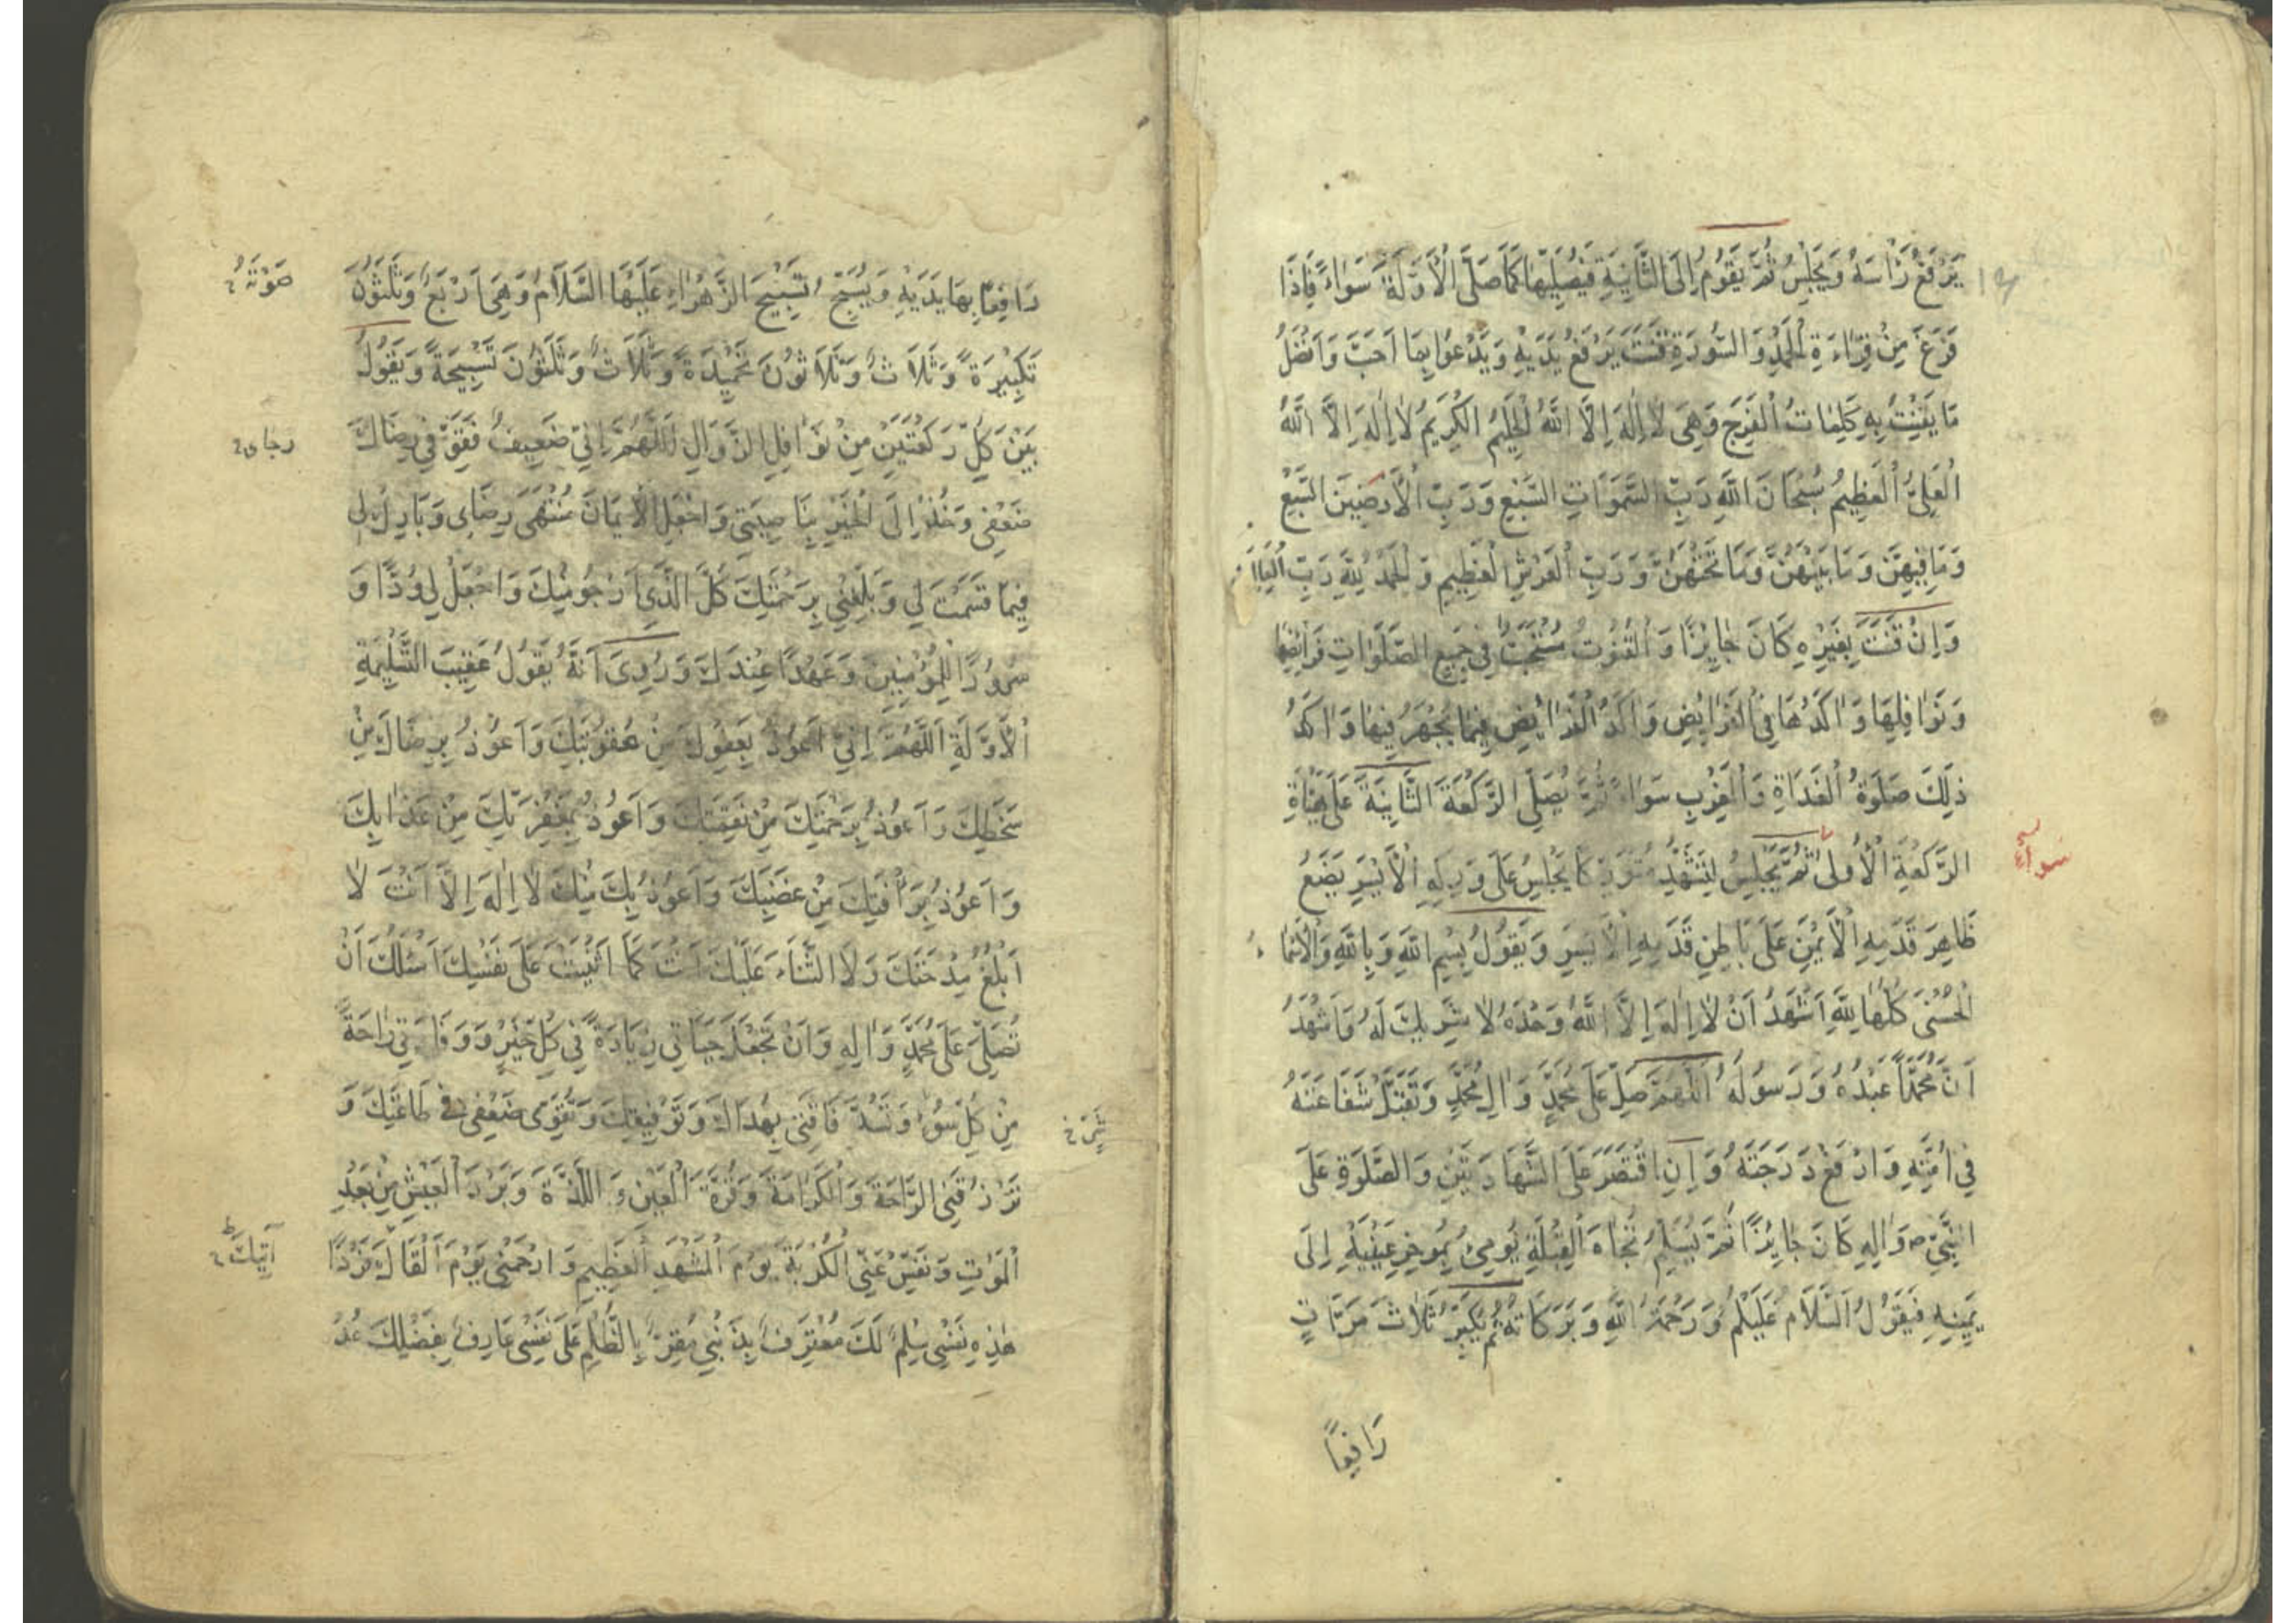 يَرْفَعُ رَأْسَهُ وَيَجْلِسُ ثُمَّ يَقُومُ إِلَى الثَّانِيَةِ فَيُصَلِّيهَا كَمَا صَلَّى الْأَوَّلَةَ سَوَاءً فَإِذَا
فَرَغَ مِنْ قِرَاءَةِ الْحَمْدِ وَالسُّورَةِ قَنَتَ يَرْفَعُ يَدَيْهِ وَيَدْعُوا بِمَا أَحَبَّ وَأَفْضَلُ
مَا يَقْنُتُ بِهِ كَلِمَاتُ الْفَرَجِ وَهِيَ لَا إِلٰهَ إِلَّا اللّٰهُ الْحَلِيمُ الْكَرِيمُ لَا إِلٰهَ إِلَّا اللّٰهُ
الْعَلِيُّ الْعَظِيمُ سُبْحَانَ اللّٰهِ رَبِّ السَّمٰوَاتِ السَّبْعِ وَرَبِّ الْأَرَضِينَ السَّبْعِ
وَمَا فِيهِنَّ وَمَا بَيْنَهُنَّ وَمَا تَحْتَهُنَّ وَرَبِّ الْعَرْشِ الْعَظِيمِ وَالْحَمْدُ لِلّٰهِ رَبِّ الْعَالَمِينَ
وَإِنْ قَنَتَ بِغَيْرِهِ كَانَ جَايِزًا وَالْقُنُوتُ مُسْتَحَبٌّ فِي جَمِيعِ الصَّلَوَاتِ فَرَائِضِهَا
وَنَوَافِلِهَا وَآكَدُهَا فِي الْفَرَايِضِ وَآكَدُ الْفَرَائِضِ فِيمَا يُجْهَرُ فِيهَا وَآكَدُ
ذٰلِكَ صَلٰوةُ الْغَدَاةِ وَالْمَغْرِبِ سَوَاءٌ ثُمَّ يُصَلِّي الرَّكْعَةَ الثَّانِيَةَ عَلَى هَيْأَةِ
الرَّكْعَةِ الْأُولَى ثُمَّ يَجْلِسُ لِلتَّشَهُّدِ مُتَوَرِّكًا يَجْلِسُ عَلَى وَرِكِهِ الْأَيْسَرِ يَضَعُ
سواء
ظَاهِرَ قَدَمِهِ الْأَيْمَنِ عَلَى بَاطِنِ قَدَمِهِ الْأَيْسَرِ وَيَقُولُ بِسْمِ اللّٰهِ وَبِاللّٰهِ وَالْأَسْمَاءُ
الْحُسْنَى كُلُّهَا لِلّٰهِ أَشْهَدُ أَنْ لَا إِلٰهَ إِلَّا اللّٰهُ وَحْدَهُ لَا شَرِيكَ لَهُ وَأَشْهَدُ
أَنَّ مُحَمَّدًا عَبْدُهُ وَرَسُولُهُ اللّٰهُمَّ صَلِّ عَلَى مُحَمَّدٍ وَآلِ مُحَمَّدٍ وَتَقَبَّلْ شَفَاعَتَهُ
فِي أُمَّتِهِ وَارْفَعْ دَرَجَتَهُ وَإِنِ اقْتَصَرَ عَلَى الشَّهَادَتَيْنِ وَالصَّلٰوةِ عَلَى
النَّبِيِّ ص وَآلِهِ كَانَ جَائِزًا ثُمَّ يُسَلِّمُ تُجَاهَ الْقِبْلَةِ يُومِئُ بِمُؤَخَّرِ عَيْنَيْهِ إِلَى
يَمِينِهِ فَيَقُولُ السَّلَامُ عَلَيْكُمْ وَرَحْمَةُ اللّٰهِ وَبَرَكَاتُهُ ثُمَّ يُكَبِّرُ ثَلَاثَ مَرَّاتٍ
رَافِعًا
رَافِعًا بِهَا يَدَيْهِ وَيُسَبِّحُ تَسْبِيحَ الزَّهْرَاءِ عَلَيْهَا السَّلَامُ وَهِيَ أَرْبَعٌ وَثَلٰثُونَ
تَكْبِيرَةً وَثَلَاثٌ وَثَلَاثُونَ تَحْمِيدَةً وَثَلَاثٌ وَثَلٰثُونَ تَسْبِيحَةً وَيَقُولُ
بَيْنَ كُلِّ رَكْعَتَيْنِ مِنْ نَوَافِلِ الزَّوَالِ اللّٰهُمَّ إِنِّي ضَعِيفٌ فَقَوِّ فِي رِضَاكَ
رجاى
ضَعْفِي وَخُذْ إِلَى الْخَيْرِ بِنَاصِيَتِي وَاجْعَلِ الْإِيمَانَ مُنْتَهَى رِضَاى وَبَارِكْ لِي
فِيمَا قَسَمْتَ لِي وَبَلِّغْنِي بِرَحْمَتِكَ كُلَّ الَّذِي أَرْجُو مِنْكَ وَاجْعَلْ لِي وُدًّا وَ
سُرُورًا لِلْمُؤْمِنِينَ وَعَهْدًا عِنْدَكَ وَرُوِيَ أَنَّهُ يَقُولُ عَقِيبَ التَّسْلِيمَةِ
الْأَوَّلَةِ اللّٰهُمَّ إِنِّي أَعُوذُ بِعَفْوِكَ مِنْ عُقُوبَتِكَ وَأَعُوذُ بِرِضَاكَ مِنْ
سَخَطِكَ وَأَعُوذُ بِرَحْمَتِكَ مِنْ نَقِمَتِكَ وَأَعُوذُ بِمَغْفِرَتِكَ مِنْ عَذَابِكَ
وَأَعُوذُ بِرَأْفَتِكَ مِنْ غَضَبِكَ وَأَعُوذُ بِكَ مِنْكَ لَا إِلٰهَ إِلَّا أَنْتَ لَا
أَبْلُغُ مِدْحَتَكَ وَلَا الثَّنَاءَ عَلَيْكَ أَنْتَ كَمَا أَثْنَيْتَ عَلَى نَفْسِكَ أَسْئَلُكَ أَنْ
تُصَلِّيَ عَلَى مُحَمَّدٍ وَآلِهِ وَأَنْ تَجْعَلَ حَيَاتِي زِيَادَةً فِي كُلِّ خَيْرٍ وَوَفَاتِي رَاحَةً
مِنْ كُلِّ سُوءٍ وَتَسُدَّ فَاقَتِي بِهُدَاكَ وَتَوْفِيقِكَ وَتُقَوِّى ضَعْفِي فِي طَاعَتِكَ وَ
تَرْزُقَنِي الرَّاحَةَ وَالْكَرَامَةَ وَقُرَّةَ الْعَيْنِ وَاللَّذَّةَ وَبَرْدَ الْعَيْشِ مِنْ بَعْدِ
الْمَوْتِ وَنَفِّسْ عَنِّي الْكُرْبَةَ يَوْمَ الْمَشْهَدِ الْعَظِيمِ وَارْحَمْنِي يَوْمَ أَلْقَاكَ فَرْدًا
آتِيكَ
هٰذِهِ نَفْسِي سِلْمٌ لَكَ مُعْتَرِفٌ بِذَنْبِي مُقِرٌّ بِالظُّلْمِ عَلَى نَفْسِي عَارِفٌ بِفَضْلِكَ